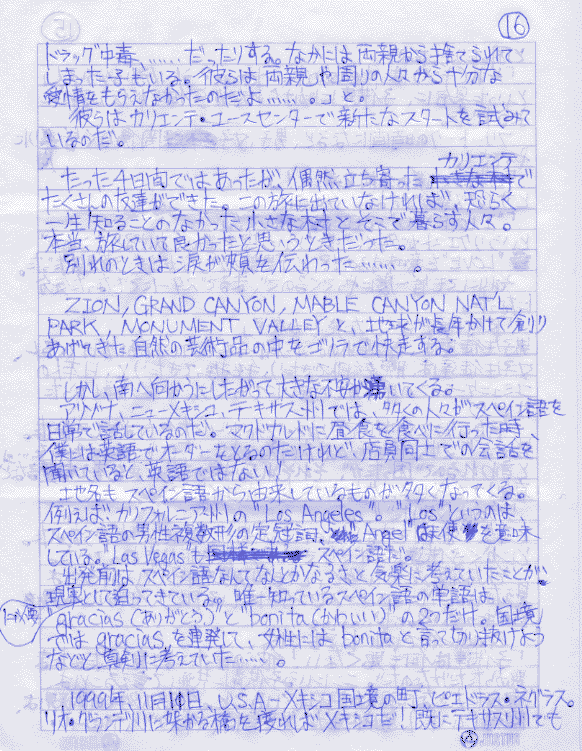 16
ドラッグ中毒、……だったりする。なかには両親から捨てられて
しまった子もいる。彼らは両親や周りの人々から十分な
愛情をもらえなかったのだよ……。」と。
彼らはカリエンテ・ユースセンターで新たなスタートを試みて
いるのだ。
カリエンテ
たった4日間ではあったが、偶然立ち寄った で
たくさんの友達ができた。この旅に出ていなければ、恐らく
一生知ることのなかった小さな村とそこで暮らす人々。
本当、旅していて良かったと思うときだった。
別れのときは涙が頬を伝わった……。
ZION, GRAND CANYON, MABLE CANYON NAT'L
PARK, MONUMENT VALLEYと、地球が長年かけて創り
あげてきた自然の芸術品の中をゴリラで快走する。
しかし、南へ向かうにしたがって大きな不安が湧いてくる。
アリゾナ、ニューメキシコ、テキサス州では、多くの人々がスペイン語を
日常で話しているのだ。マクドナルドに昼食を食べに行った時、
僕には英語でオーダーをとるのだけれど、店員同士での会話を
聞いていると、英語ではない！
地名もスペイン語から由来しているものが多くなってくる。
例えばカリフォルニア州の"Los Angeles"。"Los"というのは
スペイン語の男性複数形の定冠詞、"Angel"は天使を意味
している。"Las Vegas"も スペイン語だ。
出発前はスペイン語なんてなんとかなるさと気楽に考えていたことが、
現実として迫ってきている。唯一知っているスペイン語の単語は
"gracias(ありがとう)"と"bonita(かわいい)"の2つだけ。国境
では graciasを連発して、女性には bonitaと言って切り抜けよう
などと真剣に考えていた……。
1999年、11月10日、U.S.A－メキシコ国境の町、ピエドラス・ネグラス。
リオ・グランデ川に架かる橋を渡ればメキシコだ！既にテキサス州でも